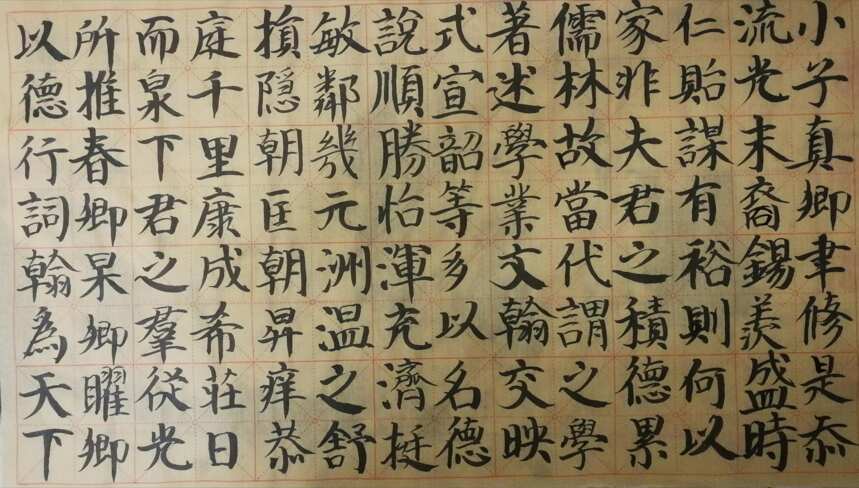 以德行詞翰為天下
所推春卿杲卿曜卿
而泉下君之羣從光
庭千里康成希莊日
損隐朝匡朝昇痒恭
敏鄰幾元洲温之舒
說順勝怡渾充濟挺
式宣韶等多以名德
著述學業文翰交映
儒林故當代謂之學
家非夫君之積德累
仁貽謀有裕則何以
流光末裔錫羨盛時
小子真卿聿修是忝